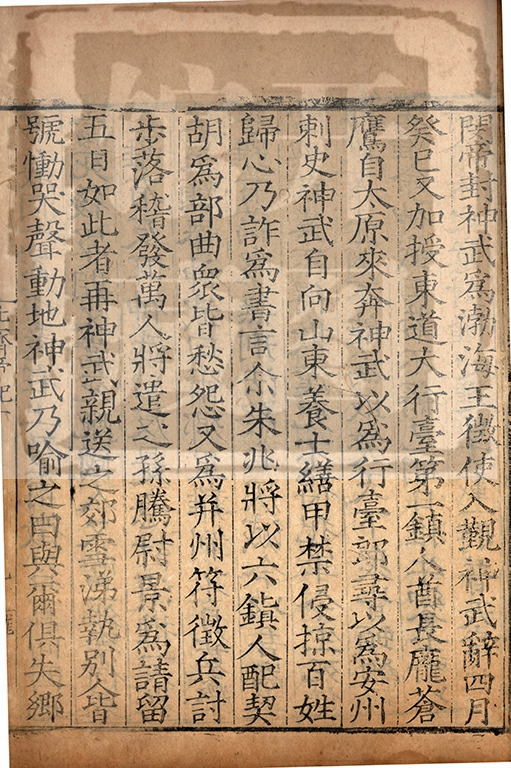 閔帝封神武爲渤海王徵使入覲神武辭四月
癸巳又加授東道大行臺第一鎮人酋長龐蒼
鷹自太原來奔神武以爲行臺郎尋以爲安州
刺史神武自向山東養士繕甲禁侵掠百姓
歸心乃詐爲書言尒朱兆將以六鎮人配契
胡爲部曲衆皆愁怨又爲并州符徵兵討
步落稽發萬人將遣之孫騰尉景爲請留
五日如此者再神武親送之郊雪涕執別人皆
號慟哭聲動地神武乃喻之曰與爾俱失鄉